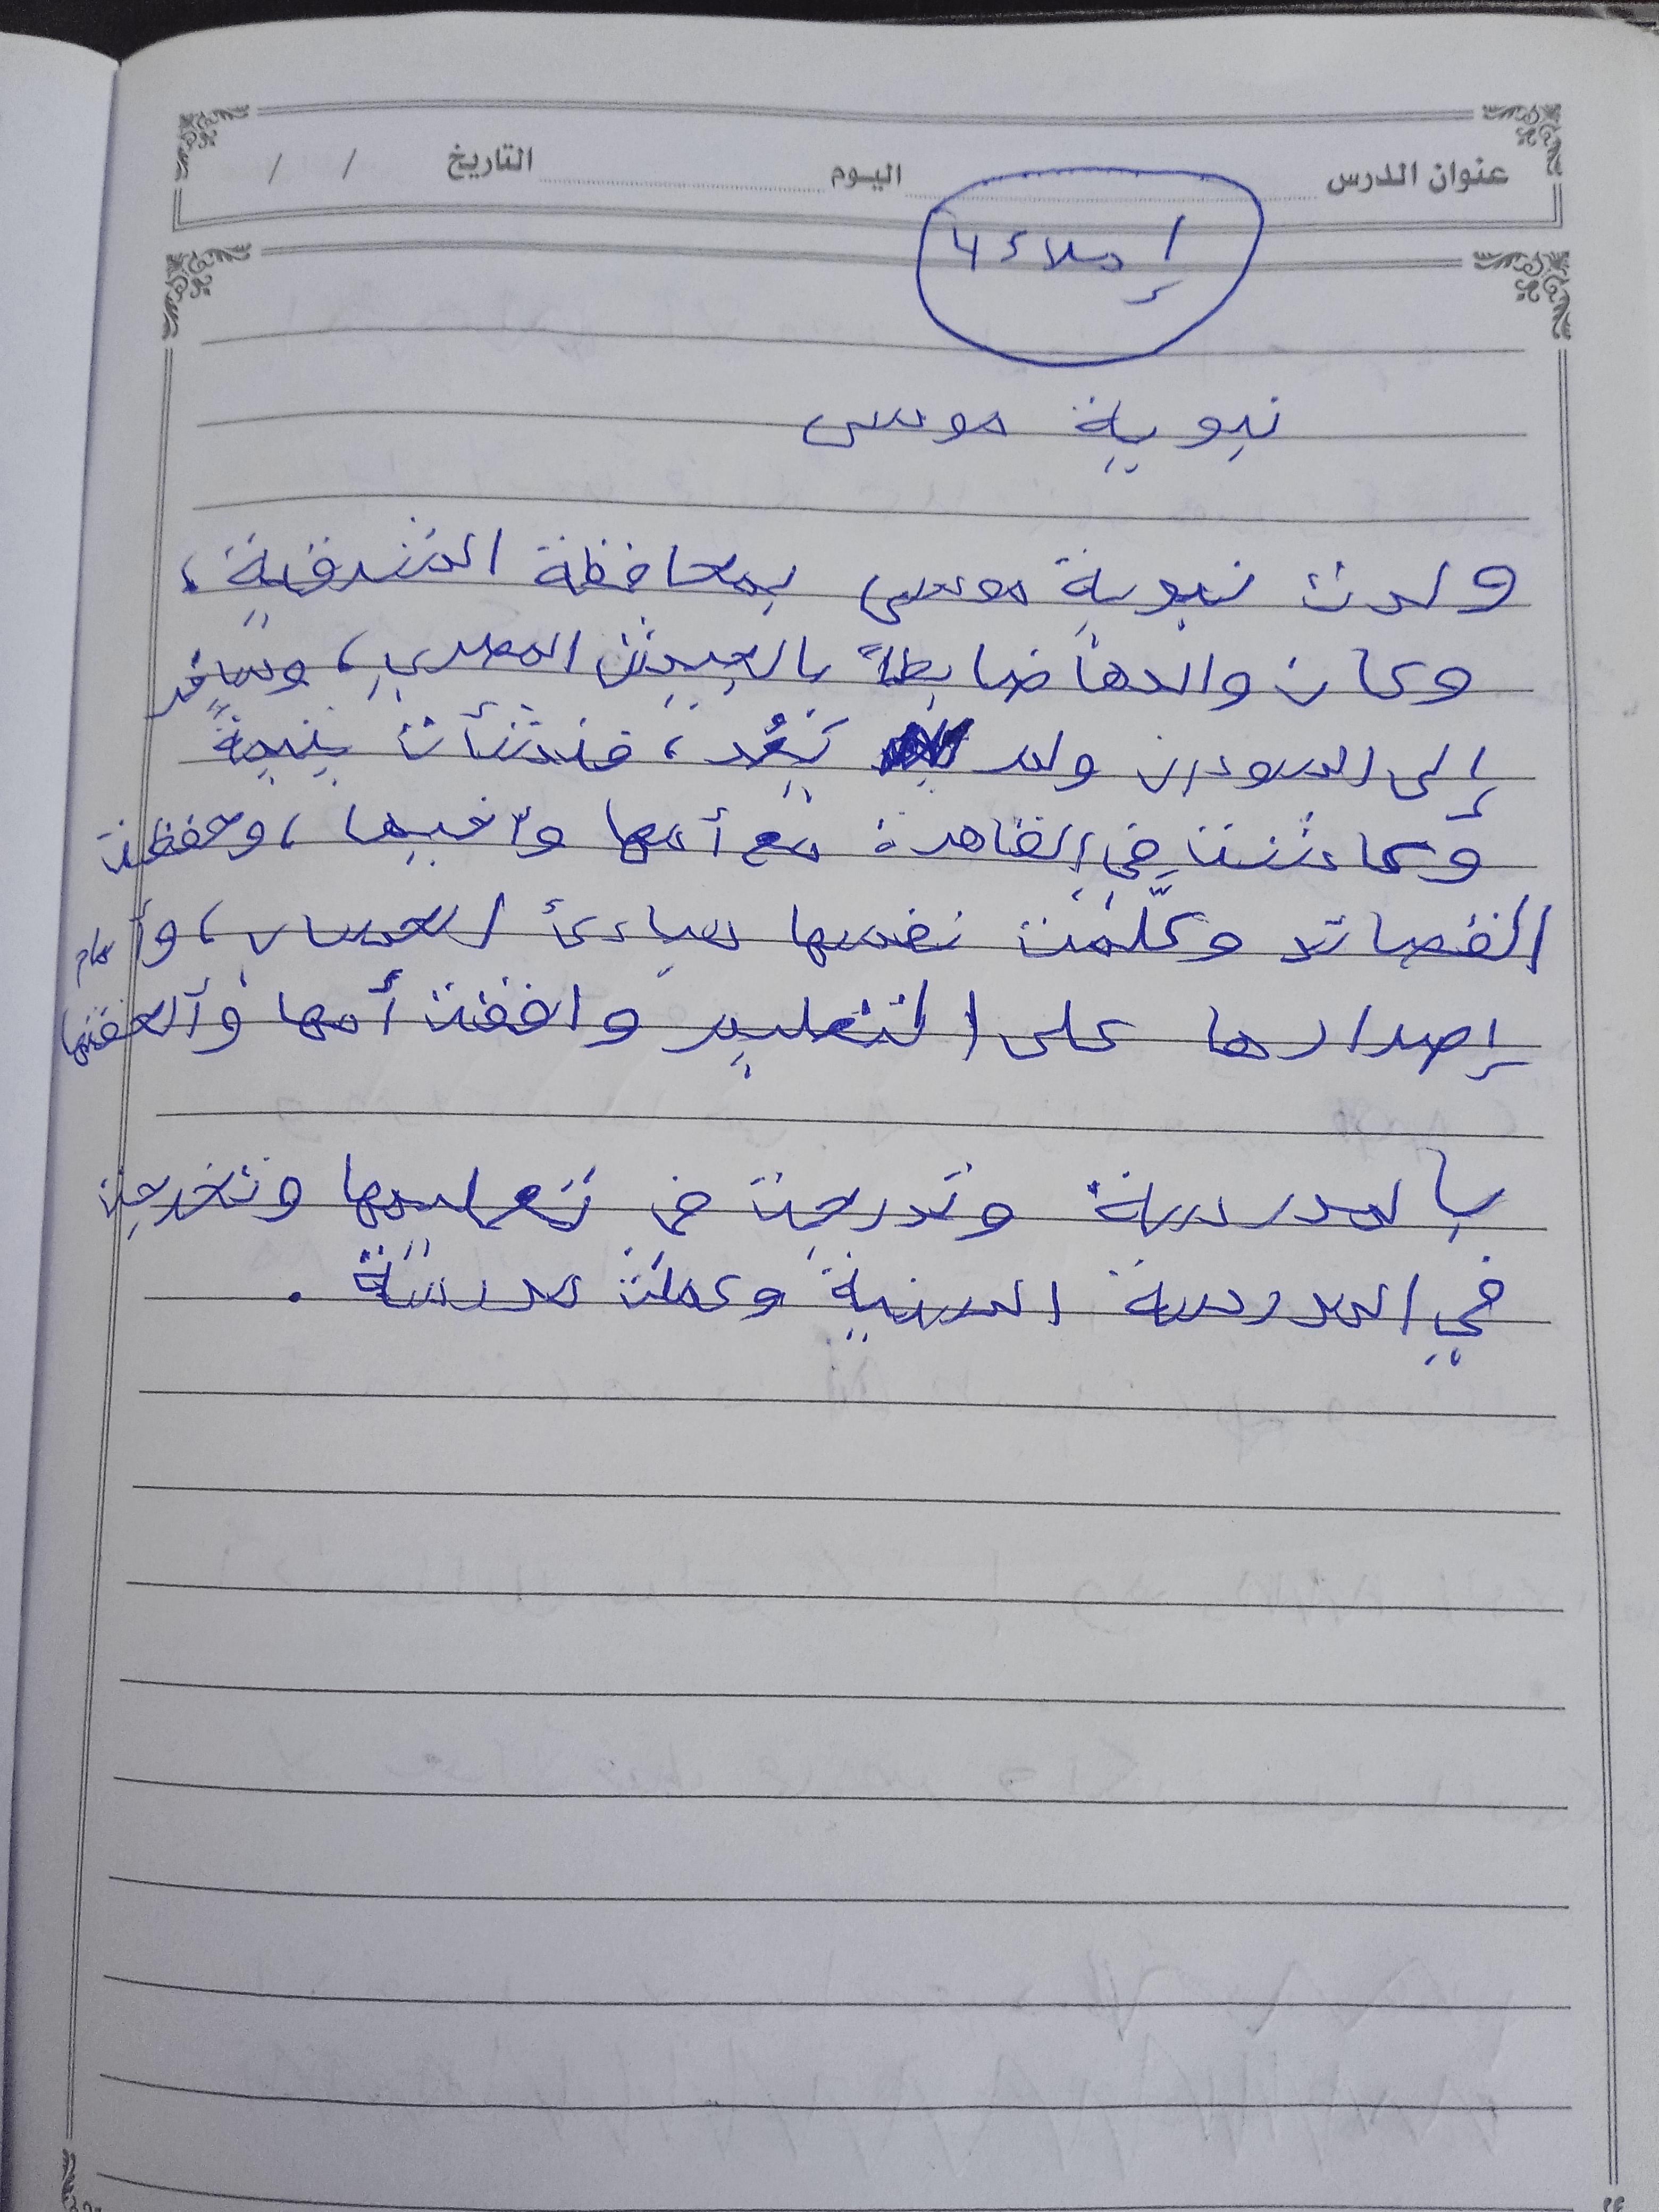 عنوان الدرس اليوم التاريخ / /
إملاء 4
نبوية موسى
ولدت نبوية موسى بمحافظة الشرقية،
وكان والدها ضابطاً بالجيش المصري، وسافر
إلى السودان ولم يَعُد، فنشأت يتيمةً
وعاشت في القاهرة مع أمها وأخيها، وحفظت
القصائد وعلّمت نفسها مبادئ الحساب، وأمام
إصرارها على التعليم وافقت أمها وألحقتها
بالمدرسة وتدرجت في تعليمها وتخرجت
في المدرسة السنية وعملت مدرسة.